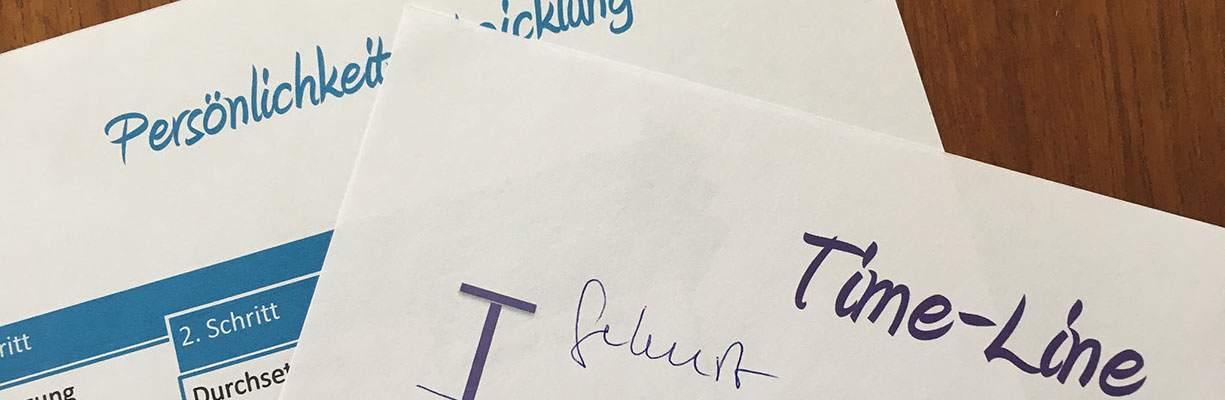 Persönlichkeit icklung
ritt
2. Schritt
ung
Durchset
Time-Line
Geburt